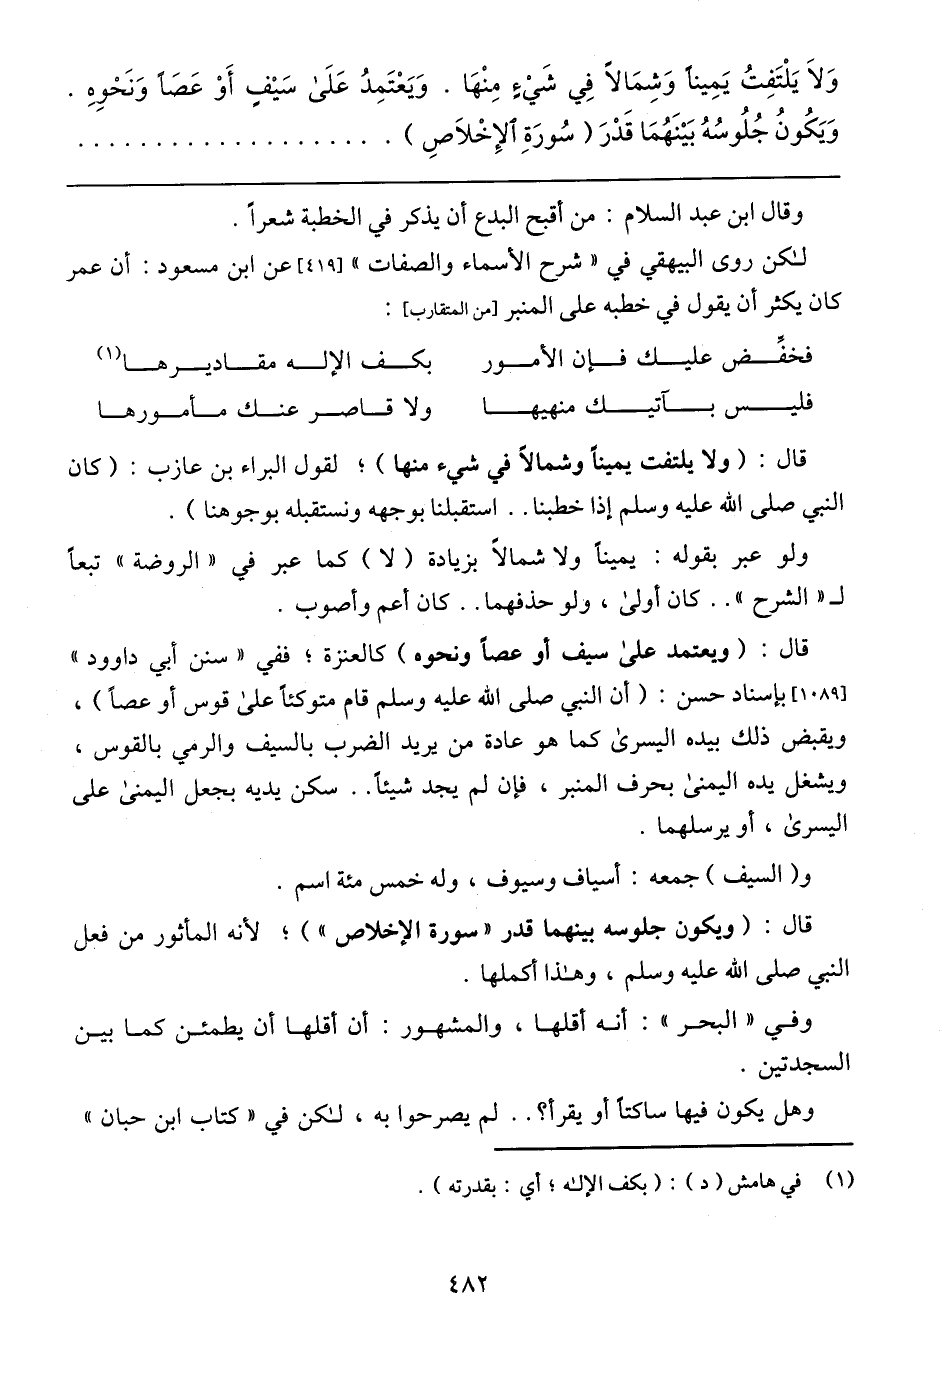 وَلاَ يَلْتَفِتُ يَمِيناً وَشِمَالاً فِي شَيْءٍ مِنْهَا . وَيَعْتَمِدُ عَلَىٰ سَيْفٍ أَوْ عَصَاً وَنَحْوِهِ .
وَيَكُونُ جُلُوسُهُ بَيْنَهُمَا قَدْرَ ( سُورَةِ ٱلإِخْلاَصِ ) . . . . . . . . . . . . . . . . . . . .
وقال ابن عبد السلام : من أقبح البدع أن يذكر في الخطبة شعراً .
لـٰكن روى البيهقي في « شرح الأسماء والصفات » [٤١٩] عن ابن مسعود : أن عمر
كان يكثر أن يقول في خطبه على المنبر [من المتقارب] :
فخفِّــض عليــك فــإن الأمــور بكــف الإلــه مقــاديــرهــا(١)
فليــــس بــــآتيــــك منهيهــــا ولا قــاصــر عنــك مــأمــورهــا
قال : ( ولا يلتفت يميناً وشمالاً في شيء منها ) ؛ لقول البراء بن عازب : ( كان
النبي صلى الله عليه وسلم إذا خطبنا . . استقبلنا بوجهه ونستقبله بوجوهنا ) .
ولو عبر بقوله : يميناً ولا شمالاً بزيادة ( لا ) كما عبر في « الروضة » تبعاً
لـ« الشرح » . . كان أولىٰ ، ولو حذفهما . . كان أعم وأصوب .
قال : ( ويعتمد علىٰ سيف أو عصاً ونحوه ) كالعنزة ؛ ففي « سنن أبي داوود »
[١٠٨٩] بإسناد حسن : ( أن النبي صلى الله عليه وسلم قام متوكئاً علىٰ قوس أو عصاً ) ،
ويقبض ذلك بيده اليسرىٰ كما هو عادة من يريد الضرب بالسيف والرمي بالقوس ،
ويشغل يده اليمنىٰ بحرف المنبر ، فإن لم يجد شيئاً . . سكن يديه بجعل اليمنىٰ على
اليسرىٰ ، أو يرسلهما .
و( السيف ) جمعه : أسياف وسيوف ، وله خمس مئة اسم .
قال : ( ويكون جلوسه بينهما قدر « سورة الإخلاص » ) ؛ لأنه المأثور من فعل
النبي صلى الله عليه وسلم ، وهـٰذا أكملها .
وفـي « البحـر » : أنـه أقلهـا ، والمشهـور : أن أقلهـا أن يطمئـن كمـا بيـن
السجدتين .
وهل يكون فيها ساكتاً أو يقرأ؟ . . لم يصرحوا به ، لـٰكن في « كتاب ابن حبان »
(١) في هامش ( د ) : ( بكف الإلـٰه ؛ أي : بقدرته ) .
٤٨٢